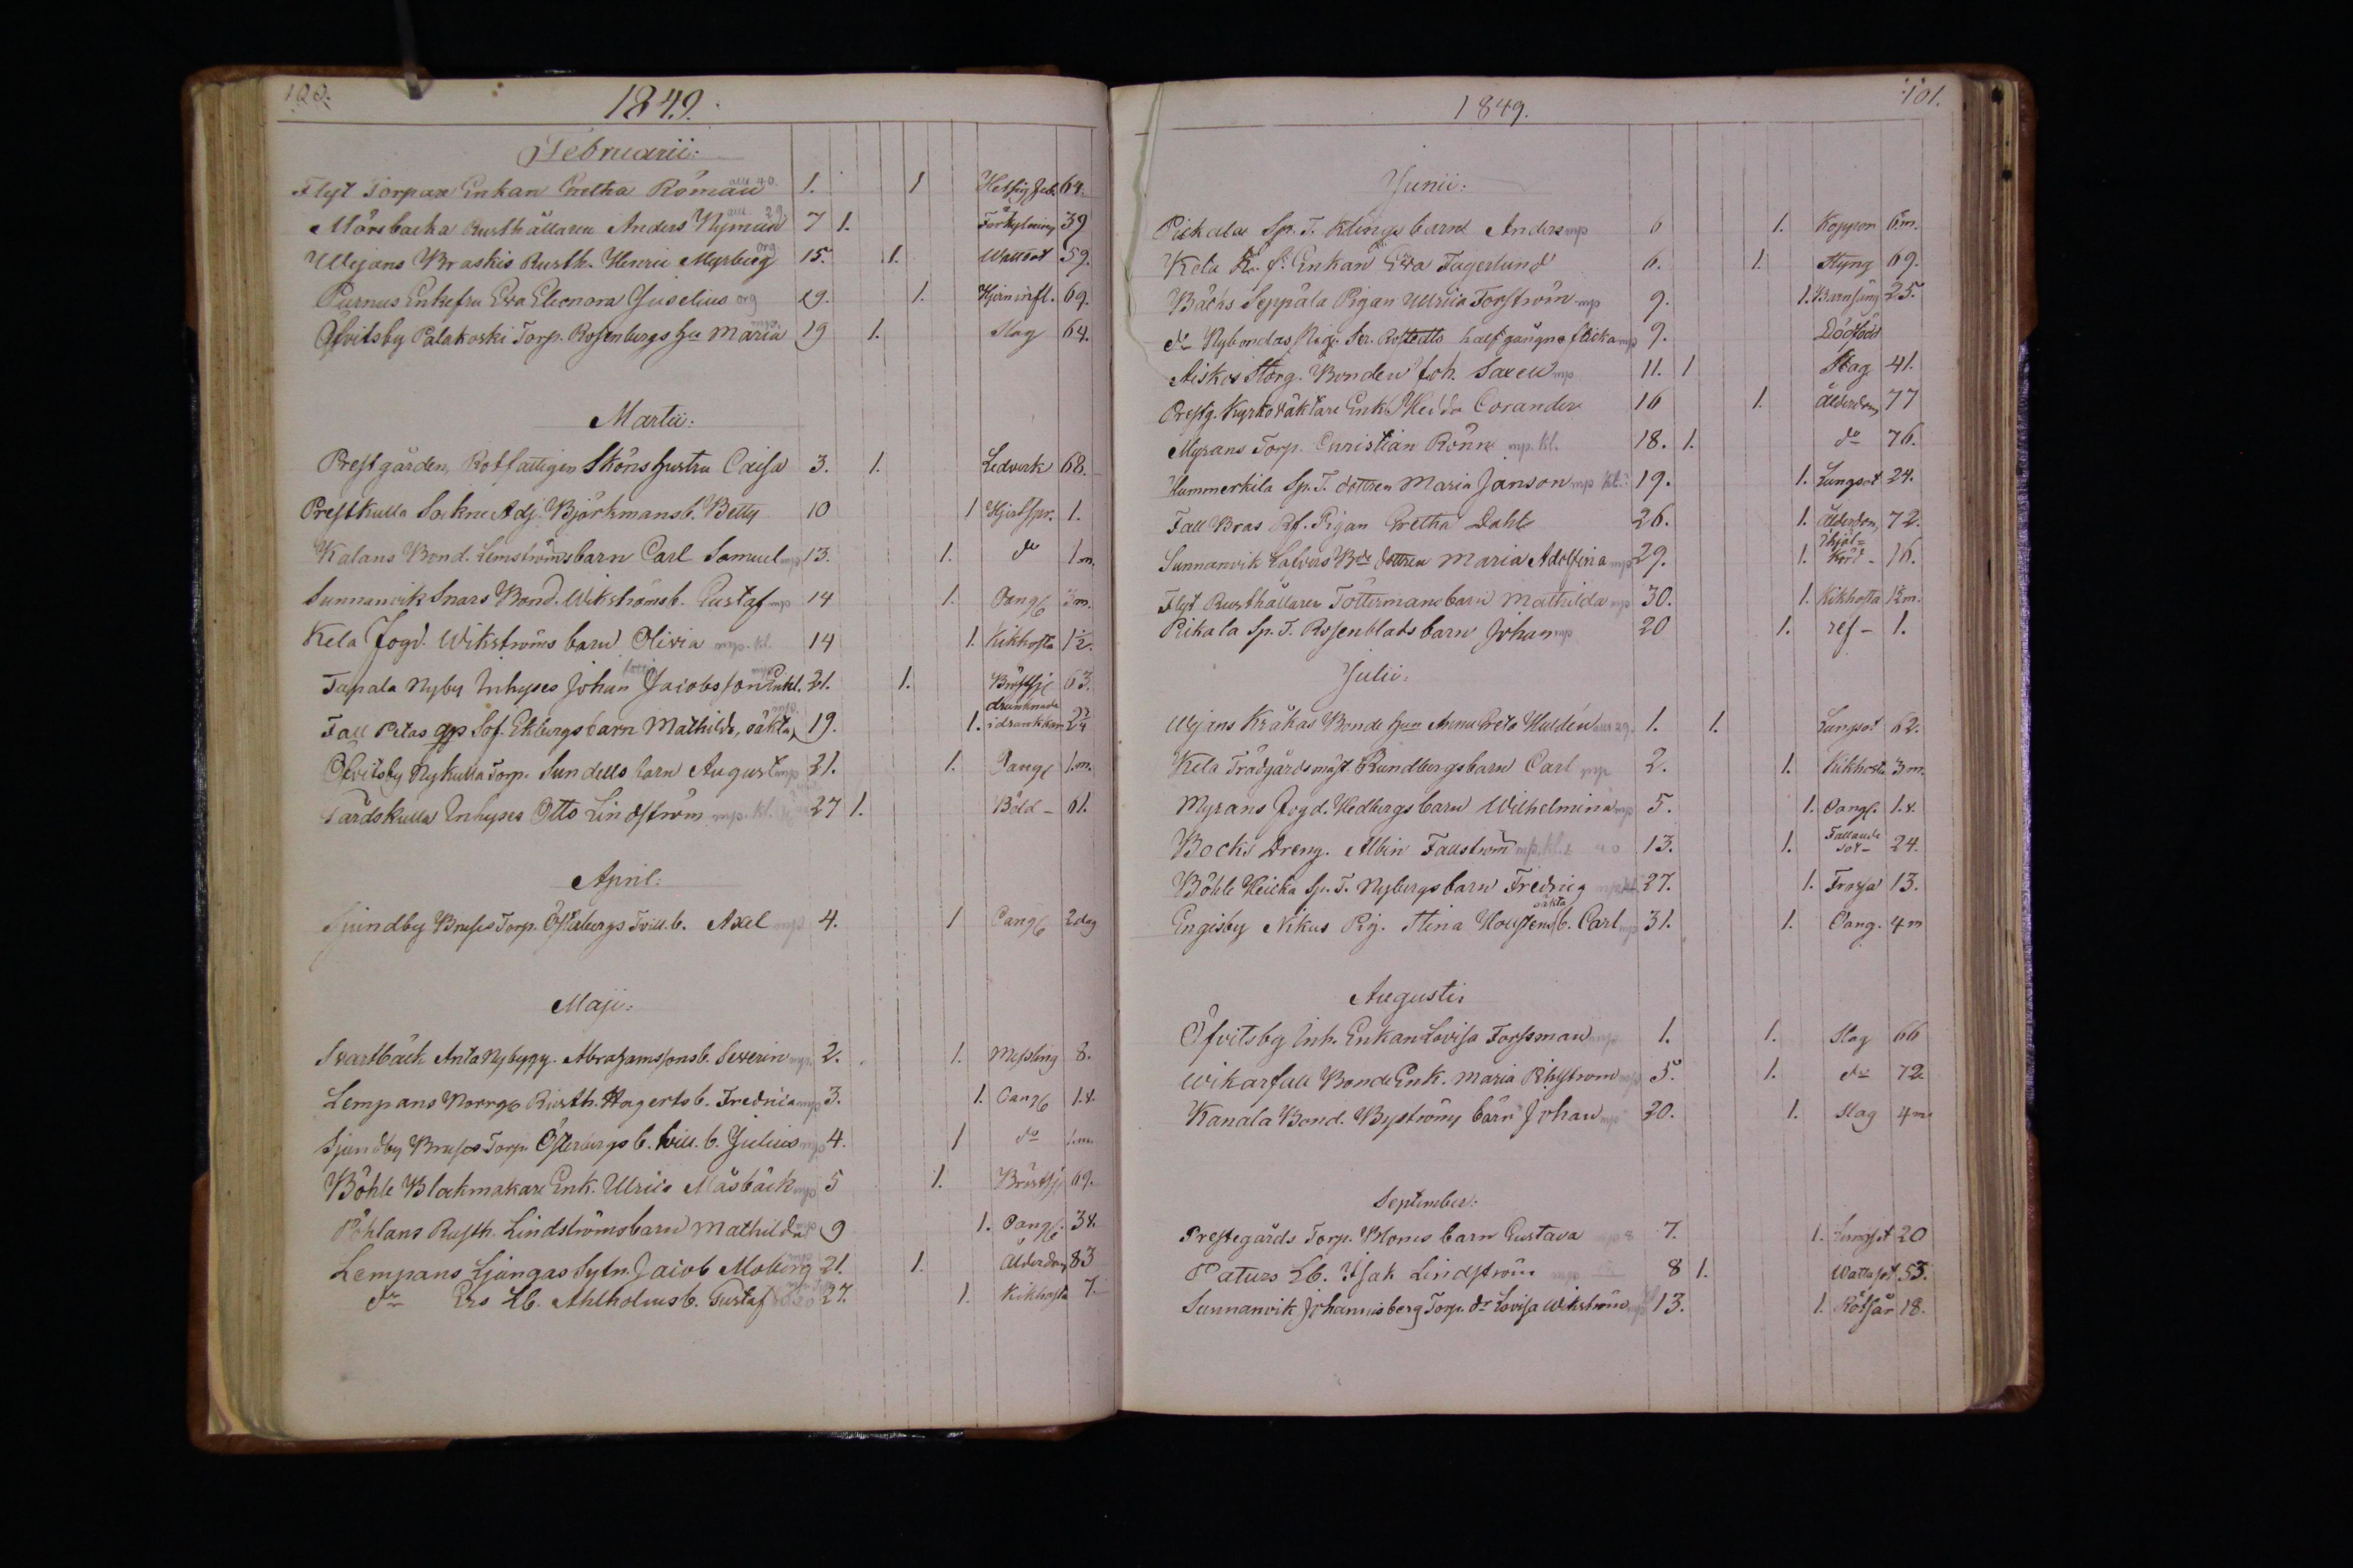 100.
1849.
Februarii:
Flyt Torpare Enkan Gretha Roman 1. 1 64.
Mårsbacka Rusthållaren Anders Nyman 7 1. Förkylning 39
Wejans Braskis Rusth. Henric Myrberg org 15. 1. Wattsot 59.
Purnus Enkefru Eva Eleonora Juselius org 19. 1. Hjärninfl. 69.
Öfvitsby Palakoski Torp. Rosenbergs Hu Maria mp. 19 1. Slag 64.
Martii:
Prestgården, Rotfattigen Sköns hustru Caisa 3. 1. Ledverk 68.
Prestkulla Sockne Adj. Björkmans b. Betty 10 1 1.
Kalans Bond. Lemströms barn Carl Samuel mp 13. 1. do 1 m.
Sunnanvik Snars Bond. Wikströms b. Gustaf mp 14 1. 3 m.
Kela Fogd. Wikströms barn Olivia mp. kl. 14 1. Kikhosta 1½.
Tapala Nyby Inhyses Johan Jacobsson Enkl. 21. 1. 63.
Fall Petas Sof. Ekbergs barn Mathilda, oäkta, 19. 1. drunknade
Öfvitsby Nykulla Torp. Sundells barn August mp 21. 1. 1. m.
Inhyses Otto Lindström mp. kl. 27 1. Böld - 61.
April:
Sjundby Bruses Torp. Österbergs Tvill. b. Axel mp 4. 1 2 dag
Maji:
Svartbäck Anta Nybygg. Abrahamssons b. Severin mp. 2. 1. Messling 8.
Lempans Norrg. Rusth. Hagerts b. Fredrica mp 3. 1.
Sjundby Bruses Torp. Österbergs b. tvill. b. Julius mp 4. 1 do
Böhle Blockmakare Enk. Ulrica Måsbäck mp 5 1. 69.
Pöhlans Rusth. Lindströms barn Mathilda mp 9 1.
Lempans Ljungas Sytn. Jacob Moberg mp 21. 1. Ålderdom 83
do Ers Lb. Ahlholms b. Gustaf 27. 1. Kikhosta 7.
101.
1849.
Junii:
Pickala Sp. T. Klings barn Anders mp 6 1. Koppon 6 m.
Kela R. f. Enkan Eva Fagerlund 6. 1. Styng 69.
Bäcks Seppälä Pigan Ulrica Forström mp 9. 1. Barnsäng 25.
do Nybondas Pig. Ser. Rostedts half gångne flicka mp 9. Dödfödt
Aiskos Storg. Bonden Joh. Saxen mp 11. 1 Slag 41.
Prestg. Kyrkovaktare Enk. Hedda Corander 16 1. Ålderdom, 77
Myrans Torp. Christian Rönn mp. kl. 18. 1. do 76.
Hummerkila Sp. T. dottren Maria Janson mp kl. 19. 1. Lungsot 24.
Fall Bras Rf. Pigan Gretha Dahl 26. 1. Ålderdom, 72.
Sunnanvik Bde dottren Maria Adolfina mp 29. 1. Ihjäl=
körd - 16.
Flyt Rusthållaren Töttermans barn Mathilda mp 30. 1. Kikhosta
Pickala Sp. T. Rosenblads barn Johan mp 20 1. ref - 1.
Julii:
Wejans Kråkas Bonde Hun Anna Greta Huldén 1. 1. Lungsot 62.
Kela Trädgårdsmäst. Rundbergs barn Carl mp 2. 1. Kikhosta 3 m.
Myrans Fogd. Hedbergs barn Wilhelmina mp 5. 1.
Bocks Dreng. Albin Fallström mp. kl. 13. 1. Fallande
sot - 24.
Böhle Heicka Sp. T. Nybergs barn Fredric 27. 1. Frossa 13.
oäkta
Engisby Nikus Pig. Stina b. Carl mp 31. 1. 4 m
Augusti:
Öfvitsby Inh. Enkan Lovisa Forssman mp 1. 1. Slag 66
Wikarfall Bonde Enk. Maria mp 5. 1. do 72.
Kanala Bond. Byströms barn Johan mp 20. 1. Slag 4 m.
September:
Prestegårds Torp. Bloms barn Gustava mp 7. 1. 20
Paturs Lb. Isak Lindström mp 8 1. Wattsot 53.
Sunnanvik Johannisberg Torp. dr Lovisa Wikström mp 13. 1. Rötsår 18.